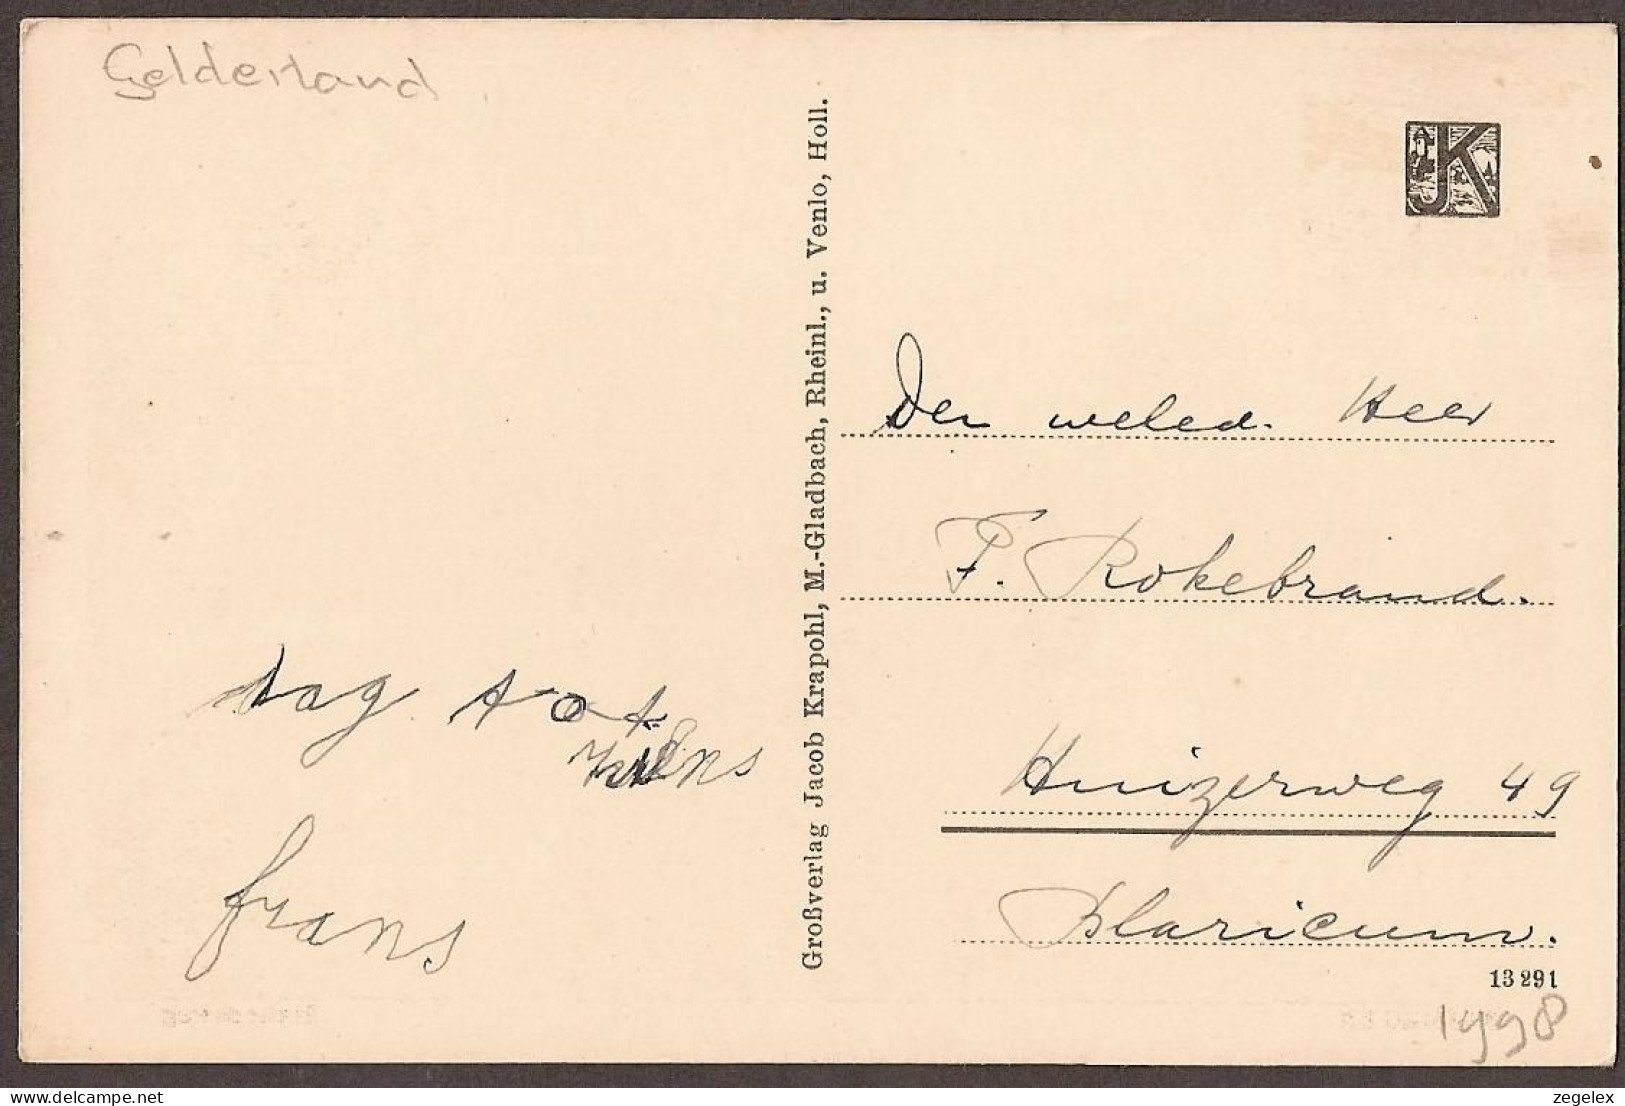 Gelderland
Großverlag Jacob Krapohl, M.-Gladbach, Rheinl., u. Venlo, Holl.
JK
Den weled. Heer
F. Rokebrand.
Huizerweg 49
Blaricum.
dag tot
ziens
frans
13291
1998
delcampe.net
zegelex